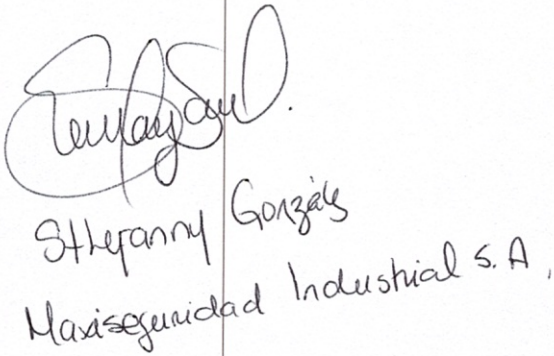 Sthefanny González
Maxiseguridad Industrial S.A.